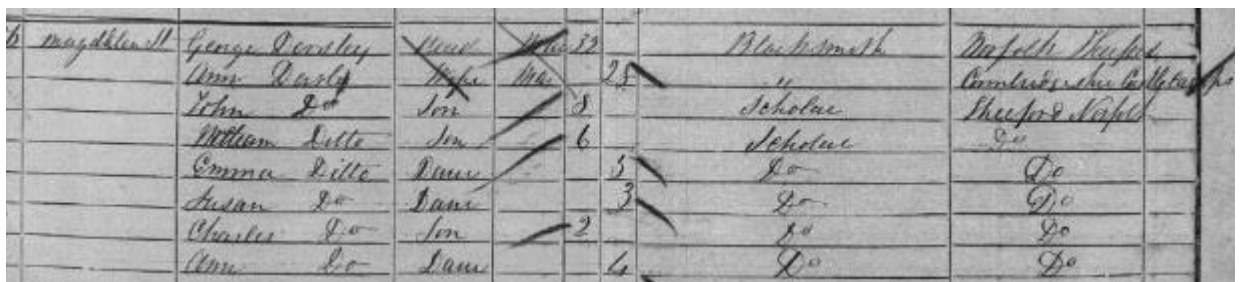 Magdalen St George Dorsley Head Mar 32 Blacksmith Norfolk
Ann Dorsly Wife Mar 28 " Cambridgeshire
John Do Son 8 Scholar
William Ditto Son 6 Scholar Do
Emma Ditto Daur 5 Do Do
Susan Do Daur 3 Do Do
Charles Do Son 2 Do Do
Ann Do Daur 4 Do Do